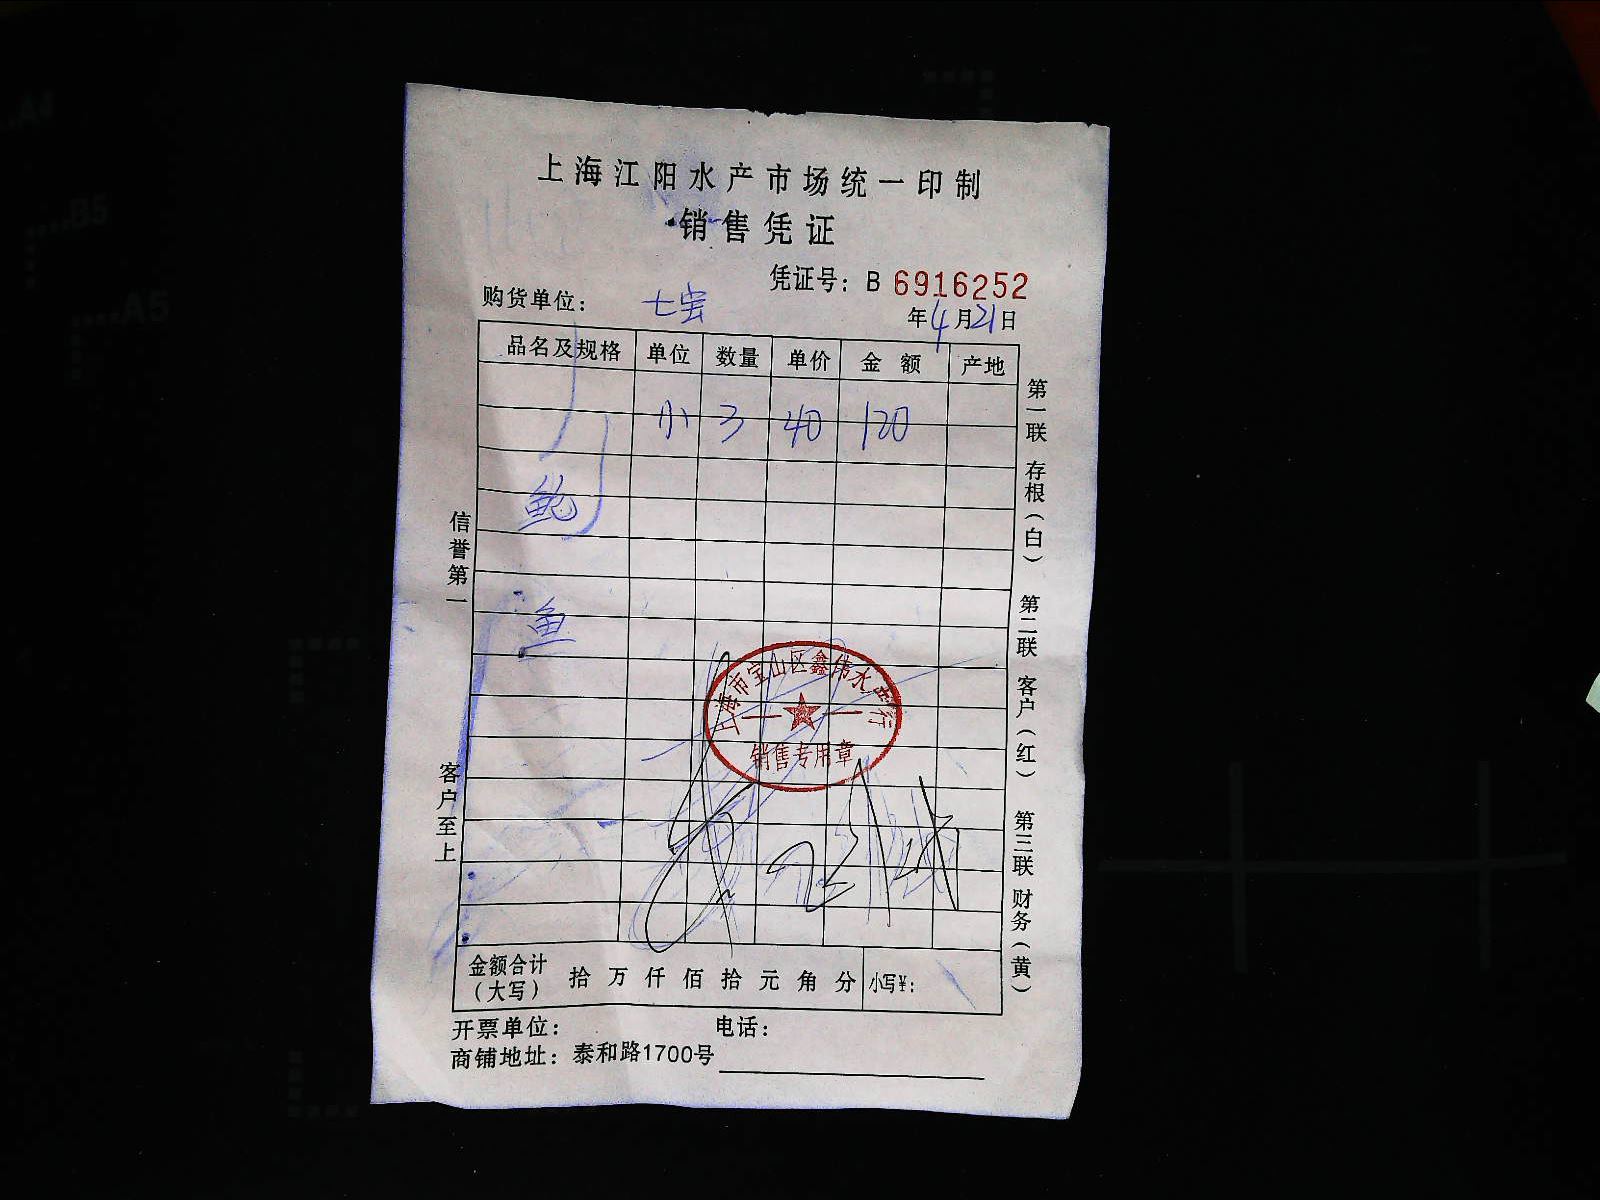 上海江阳水产市场统一印制
销售凭证
凭证号：B 6916252
购货单位：七宝
年4月21日
品名及规格 单位 数量 单价 金额 产地
小 3 40 120
鲍
鱼
上海市宝山区鑫伟水产行
销售专用章
金额合计（大写） 拾 万 仟 佰 拾 元 角 分 小写¥：
开票单位： 电话：
商铺地址：泰和路1700号
信誉第一 客户至上
第一联 存根（白） 第二联 客户（红） 第三联 财务（黄）
A4
B5
A5